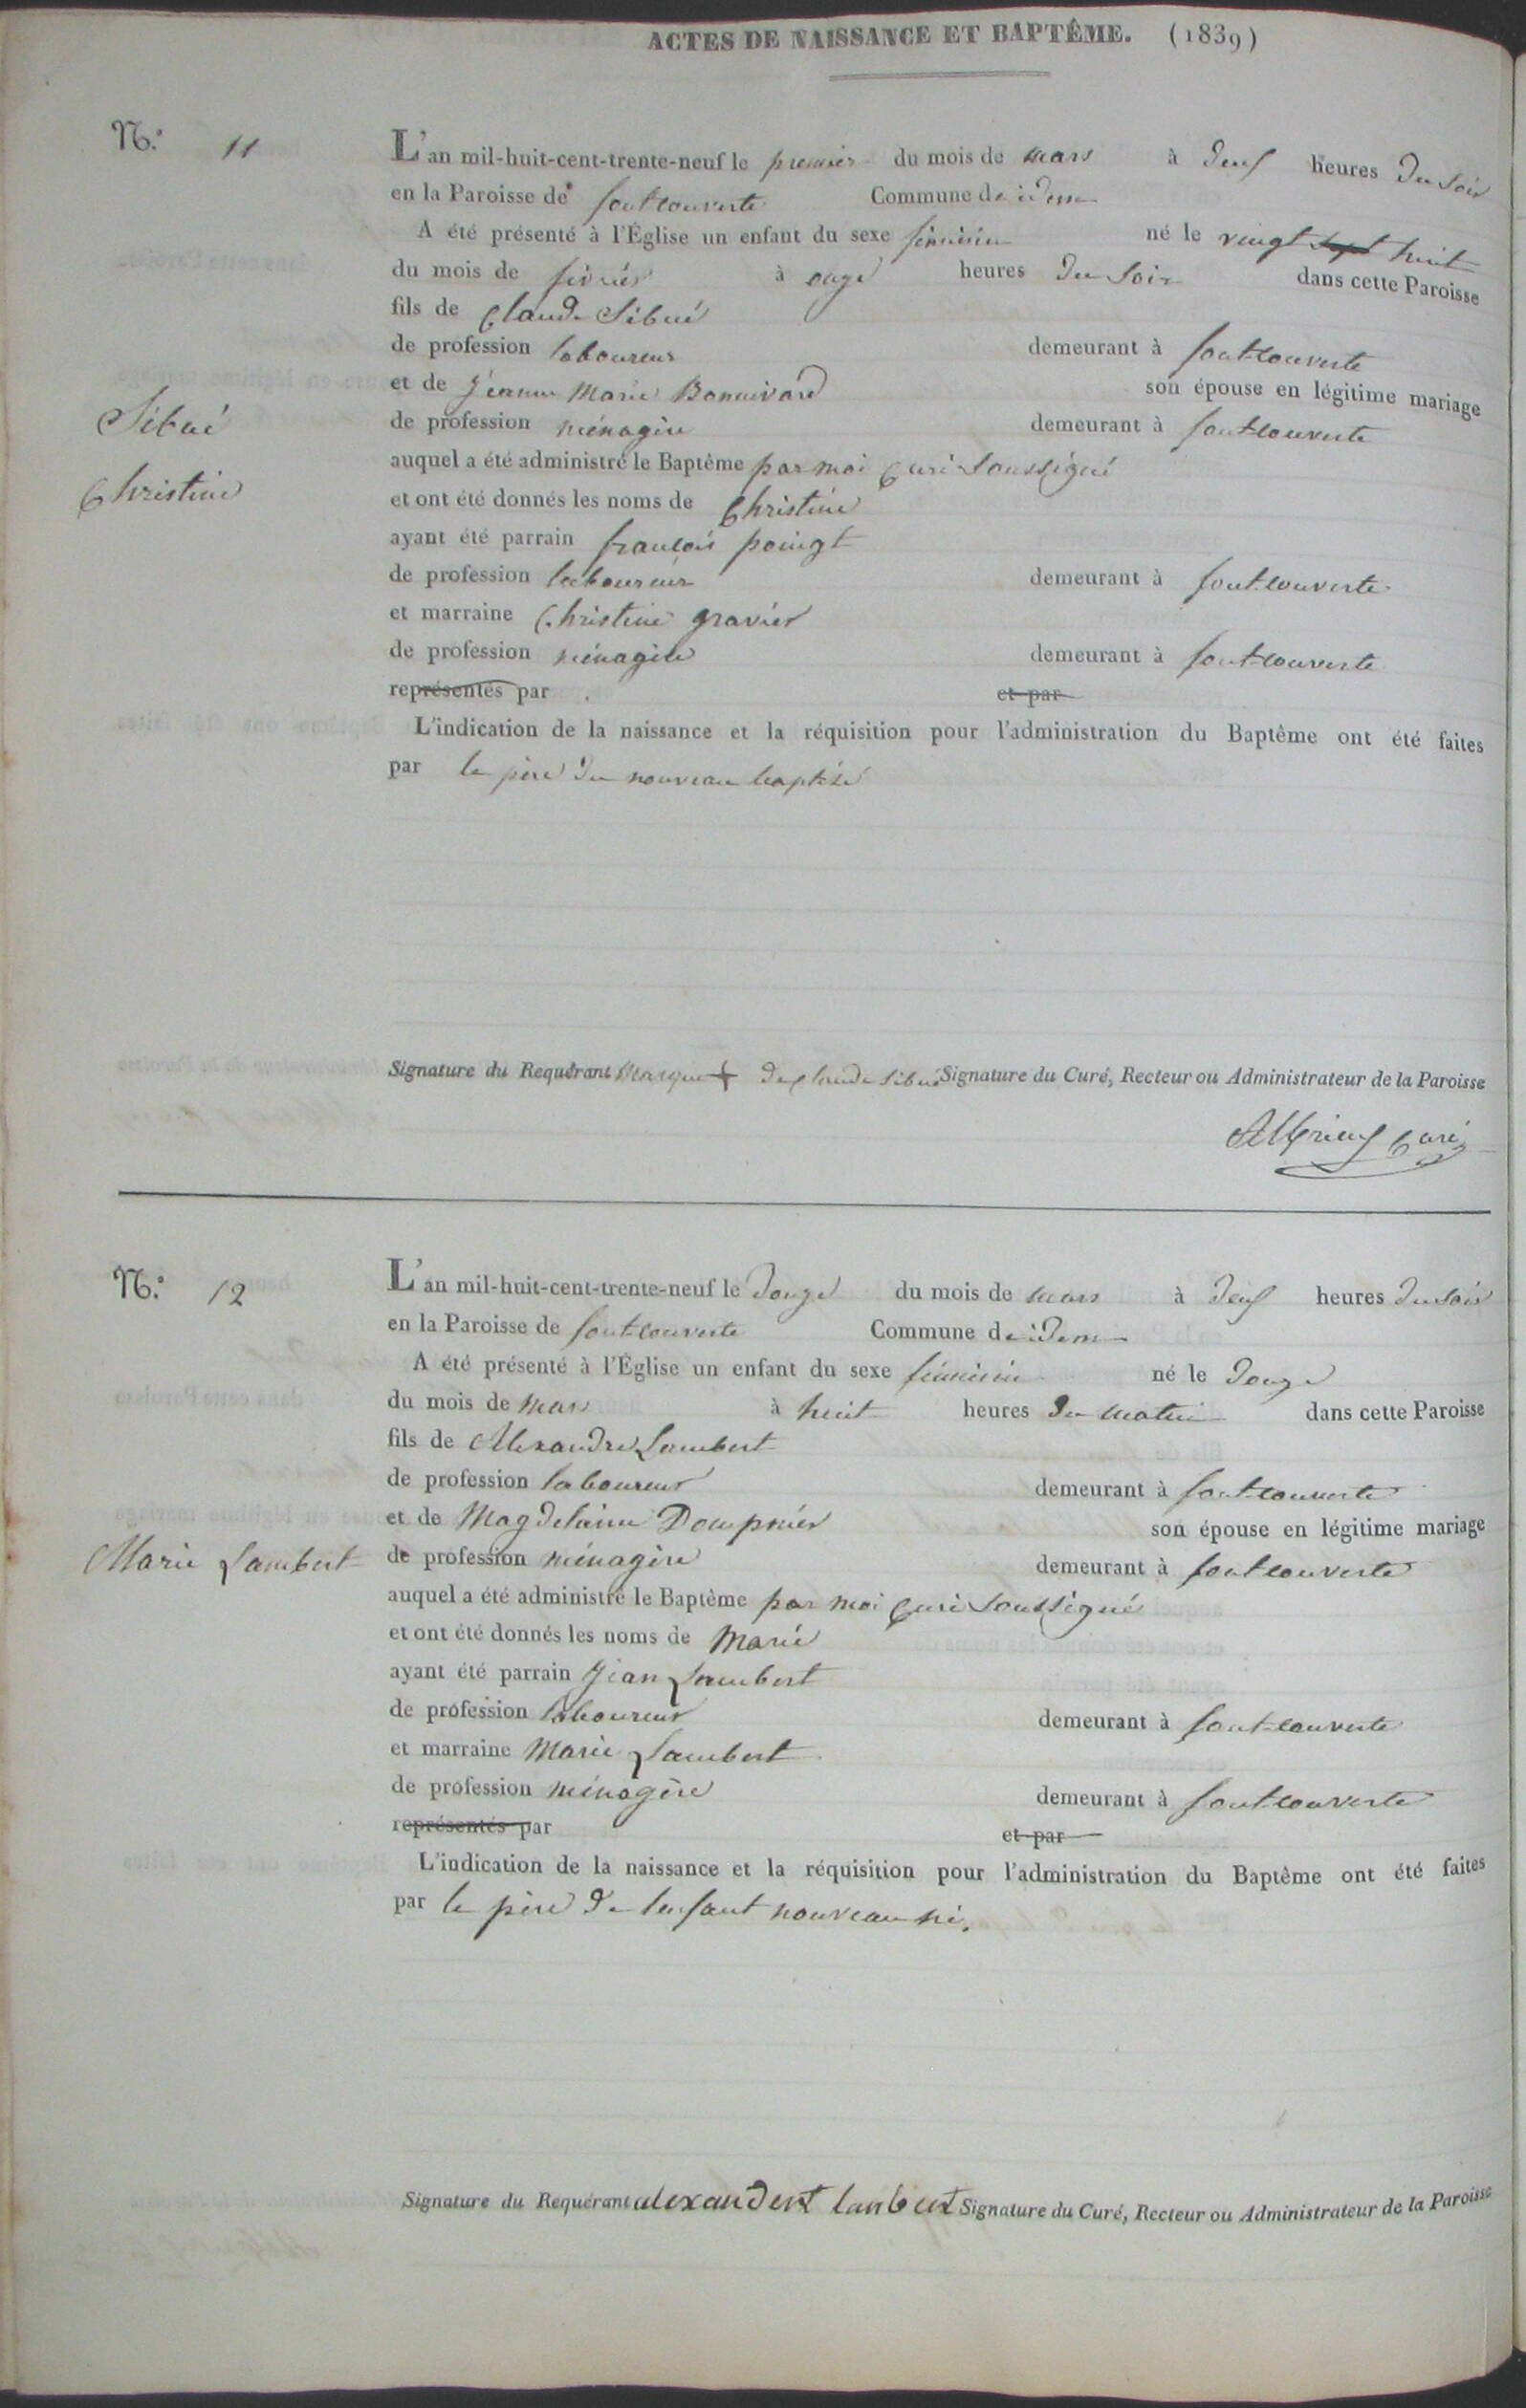 ACTES DE NAISSANCE ET BAPTÊME. (1839)
N.° 11
L'an mil-huit-cent-trente-neuf le premier du mois de mars à deux heures du soir
en la Paroisse de fontcouverte Commune de idem
A été présenté à l'Église un enfant du sexe féminin né le vingt sept huit
du mois de février à onze heures du soir dans cette Paroisse
fils de Claude Sibué
de profession laboureur demeurant à fontcouverte
et de Jeanne Marie Bonnivard son épouse en légitime mariage
Sibué
de profession ménagère demeurant à fontcouverte
auquel a été administré le Baptême par moi Curé soussigné
Christine
et ont été donnés les noms de Christine
ayant été parrain francois poingt
de profession laboureur demeurant à fontcouverte
et marraine Christine gravier
de profession ménagère demeurant à fontcouverte
représentés par et par
L'indication de la naissance et la réquisition pour l'administration du Baptême ont été faites
par le père du nouveau baptisé
Signature du Requérant Marque + de Claude Sibué Signature du Curé, Recteur ou Administrateur de la Paroisse
Curé
N.° 12
L'an mil-huit-cent-trente-neuf le douze du mois de mars à deux heures du soir
en la Paroisse de fontcouverte Commune de idem
A été présenté à l'Église un enfant du sexe féminin né le douze
du mois de mars à huit heures du matin dans cette Paroisse
fils de Alexandre Lambert
de profession laboureur demeurant à fontcouverte
et de Magdelaine Dompnier son épouse en légitime mariage
Marie Lambert
de profession ménagère demeurant à fontcouverte
auquel a été administré le Baptême par moi Curé soussigné
et ont été donnés les noms de Marie
ayant été parrain Jean Lambert
de profession laboureur demeurant à fontcouverte
et marraine Marie Lambert
de profession ménagère demeurant à fontcouverte
représentés par et par
L'indication de la naissance et la réquisition pour l'administration du Baptême ont été faites
par le père de lenfant nouveau né.
Signature du Requérant alexandert lanbert Signature du Curé, Recteur ou Administrateur de la Paroisse